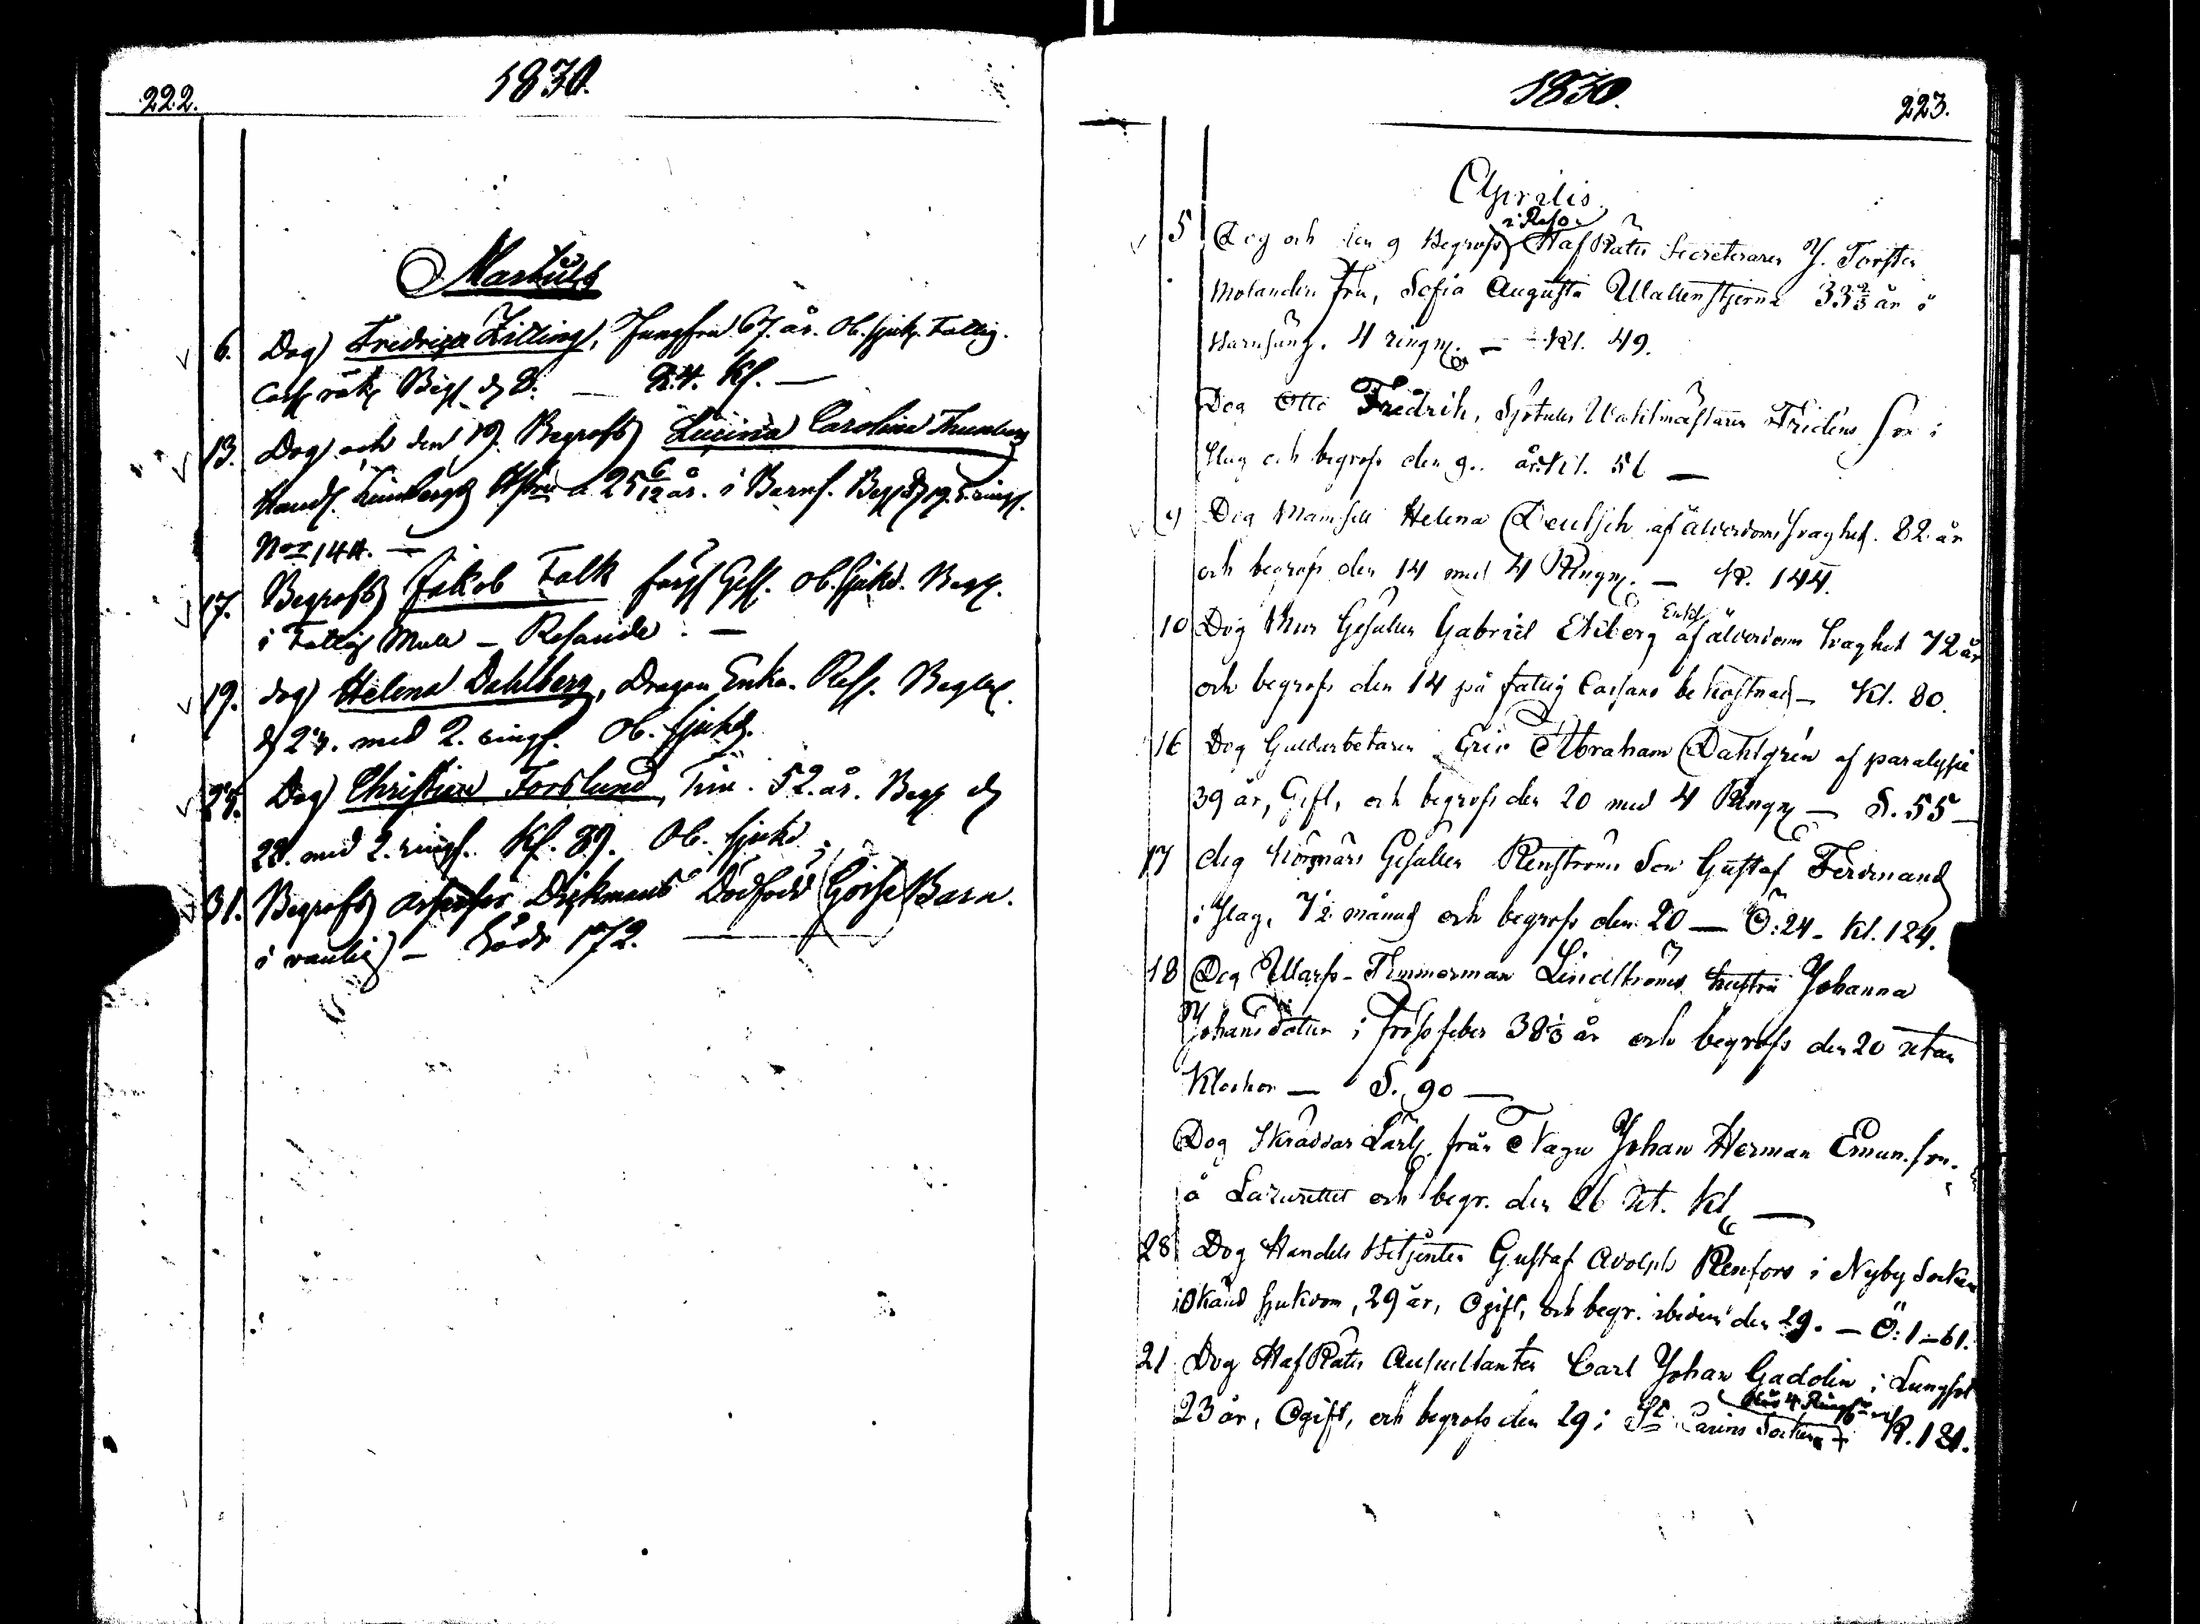 222.
1830.
Martius
6. Dog Fredrica Zilling, Jungfru 67. år. Ob. sjukd. Fattig.
Cass räk Begr d 8. — Kl. —
13. Dog och den 19. Begrofs Lucina Carolina Thunberg
Handl. Thunbergs Hustru a 25 6/12 år. i Barns. Beg d 19. 5. ring.
No 144. —
17. Begrofs Jakob Falk färg Gess. Ob. sjukd. Begr.
i Fattig Mull — Resande. —
19. dog Helena Dahlberg, Dragon Enka. Begr.
d 24. med 2. ring. Ob. sjukd.
25. Dog Christian Forslund, Tim. 52. år. Begr d
28. med 2. ring. Kl. 89. Ob. sjukd.
31. Begrofs Assessor Dickmans Dödfödd Gosse Barn.
i vanlig — Södr 172. —
1830.
223.
Aprilis
i Reso
5 Dog och den 9 Begrofs HafRätts Secreteraren J. Torsten
Molanders Fru, Sofia Augusta Wallenstjerna 33 2/3 år i
Barnsäng. 4 ringn. — Kl. 49.
Dog Otto Fredrik, Sjötulls Waktmästaren Fridens son i
Slag och begrofs den 9. Kl. 51 —
9 Dog Mamsell Helena Deutsch af ålderdoms svaghet. 82 år
och begrofs den 14 med 4 Ringn. — 144.
Enkl.
10 Dog Mur Gesällen Gabriel Ekberg af ålderdoms svaghet 72 år
och begrofs den 14 på fattig Cassans bekostnad — Kl. 80.
16 Dog Guldarbetaren Eric Abraham Dahlgrén af paralysie
39 år, Gift, och begrofs den 20 med 4 Ringn — S. 55 —
17 dog Gesällen Renströms Son Gustaf Ferdinand
i Slag, 7½ månad och begrofs den 20 — Ö: 24 - Kl. 124.
18 Dog Warfs-Timmerman Lindströms hustru Johanna
Johansdotter i frossfeber 38 1/3 år och begrofs den 20 utan
Klockor — S. 90 —
Dog Skräddar Lärl. från Nagu Johan Herman Emun. son.
å Lazarettet och begr. den 26 ut. Kl. —
28 Dog Handels Betjenten Gustaf Adolph Renfors i Nyby Socken
i Okänd sjukdom, 29 år, Ogift, och begr. ibidem den 29. — Ö: 1 — 61.
21 Dog HafRätts Auscultanten Carl Johan Gadolin i Lungsot
4 Ringn
23 år, Ogift, och begrofs den 29 i St Carins Socken — 181.